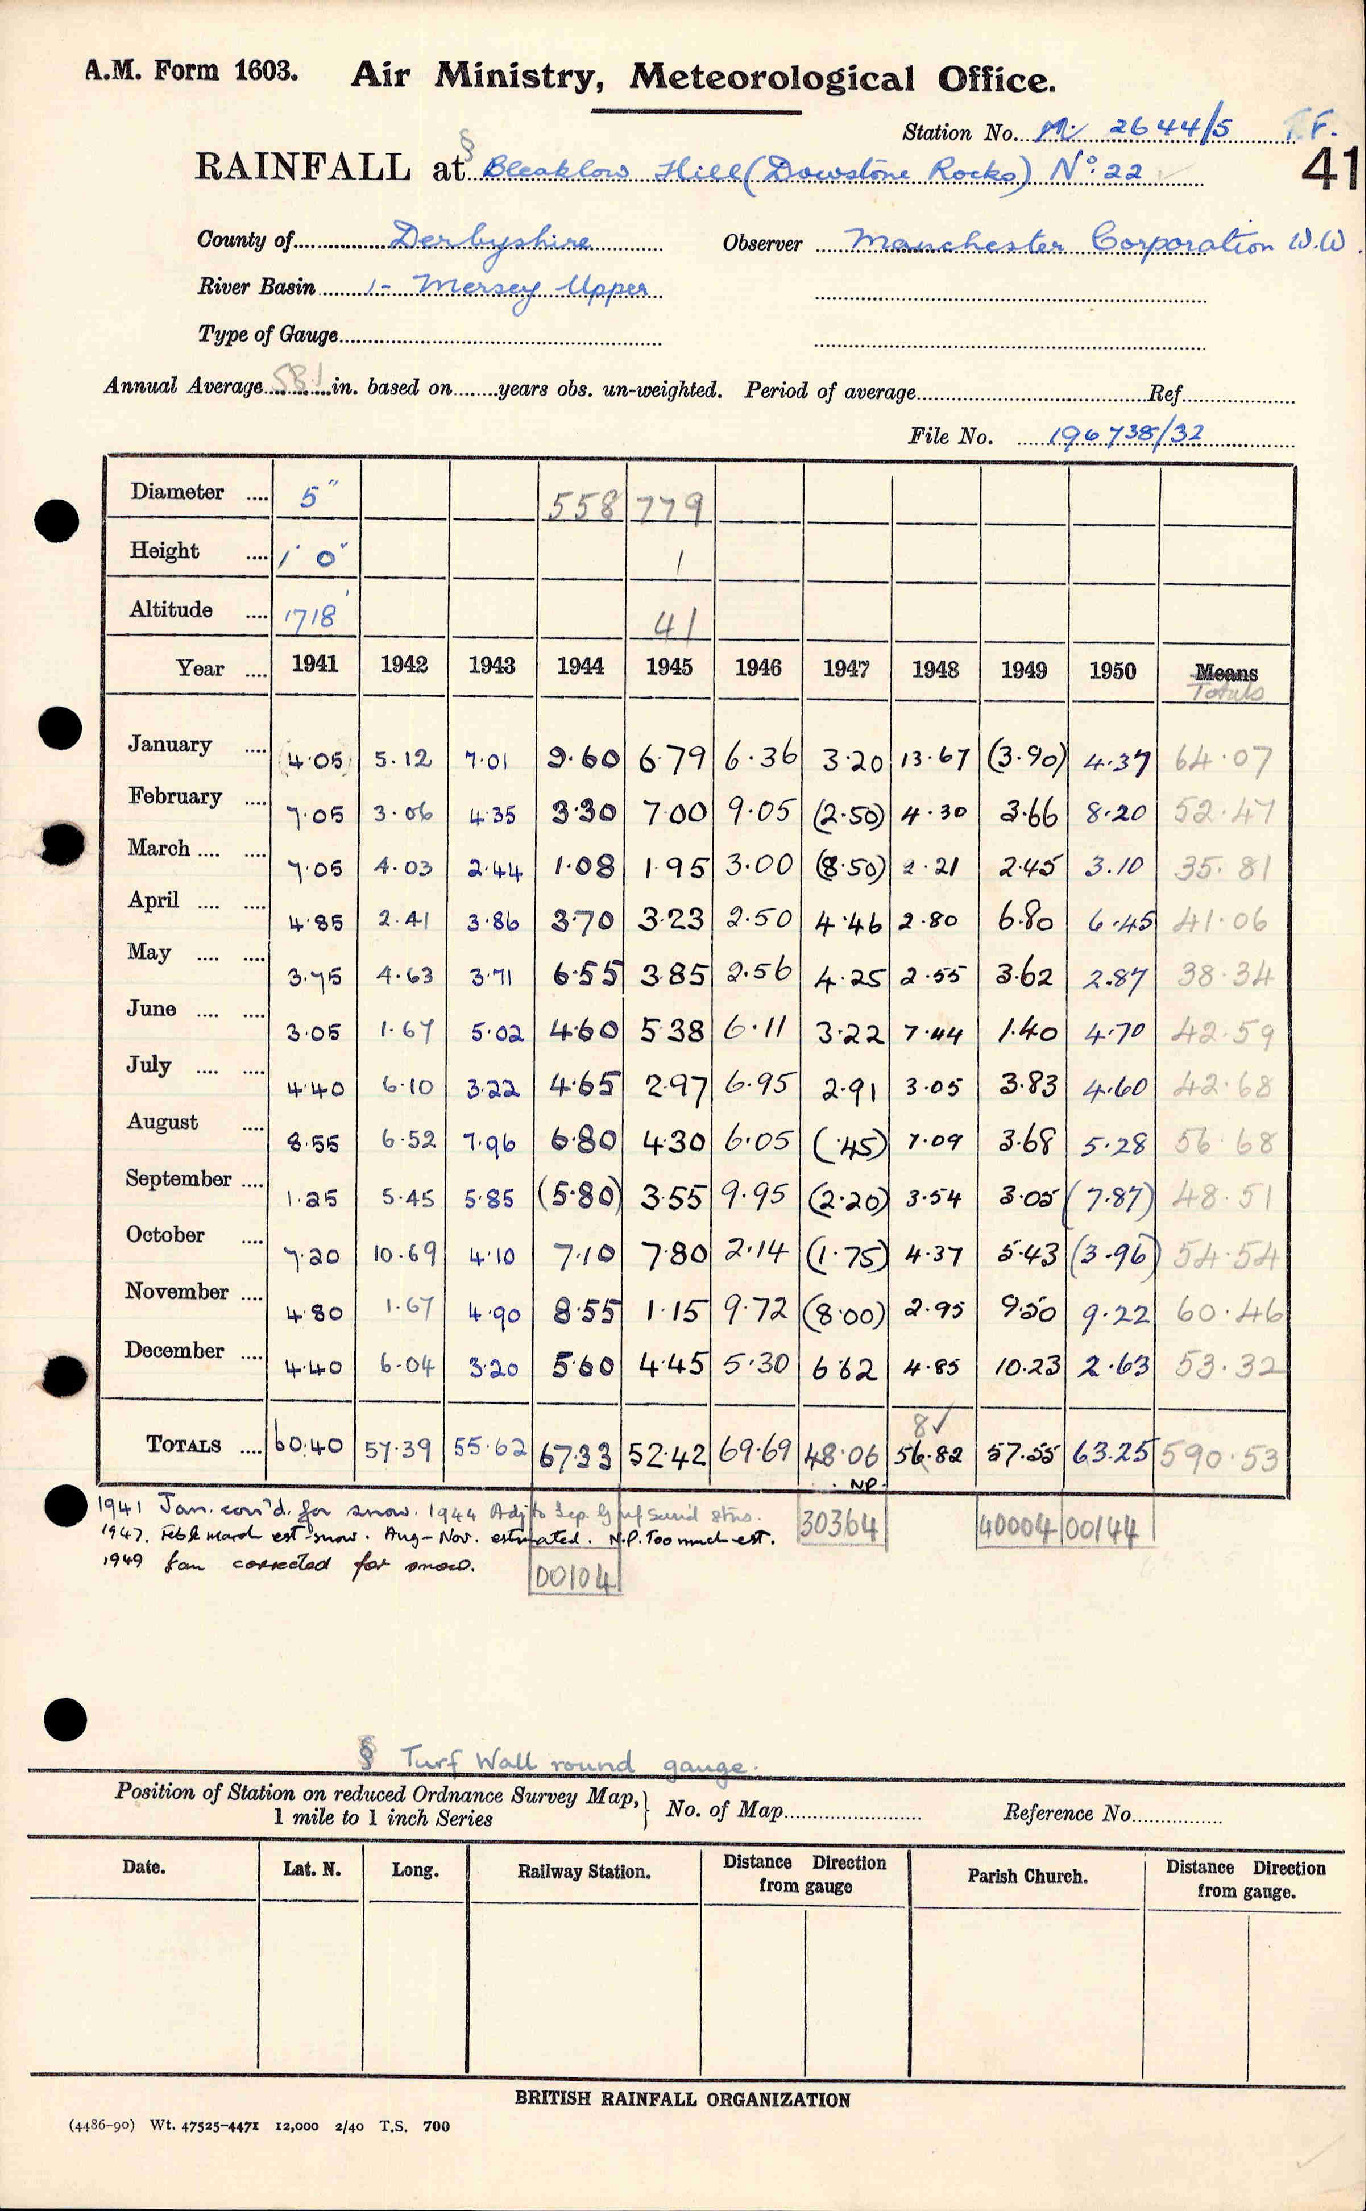 A.M. Form 1603. Air Ministry, Meteorological Office.
Station No. M. 2644/5 F.F.
RAINFALL at § Bleaklow Hill (Dowstone Rocks) No. 22 41
County of Derbyshire Observer Manchester Corporation W.W.
River Basin 1- Mersey Upper
Type of Gauge
Annual Average 581 in. based on years obs. un-weighted. Period of average Ref
File No. 196738/32
Diameter .... 5" 558 779
Height .... 1' 0" 1
Altitude .... 1718' 41
Year .... 1941 1942 1943 1944 1945 1946 1947 1948 1949 1950 Means
Totals
January .... (4.05) 5.12 7.01 9.60 6.79 6.36 3.20 13.67 (3.90) 4.37 64.07
February .... 7.05 3.06 4.35 3.30 7.00 9.05 (2.50) 4.30 3.66 8.20 52.47
March .... .... 7.05 4.03 2.44 1.08 1.95 3.00 (8.50) 2.21 2.45 3.10 35.81
April .... .... 4.85 2.41 3.86 3.70 3.23 2.50 4.46 2.80 6.80 6.45 41.06
May .... .... 3.75 4.63 3.71 6.55 3.85 2.56 4.25 2.55 3.62 2.87 38.34
June .... .... 3.05 1.67 5.02 4.60 5.38 6.11 3.22 7.44 1.40 4.70 42.59
July .... .... 4.40 6.10 3.22 4.65 2.97 6.95 2.91 3.05 3.83 4.60 42.68
August .... 8.55 6.52 7.96 6.80 4.30 6.05 (.45) 7.09 3.68 5.28 56.68
September .... 1.25 5.45 5.85 (5.80) 3.55 9.95 (2.20) 3.54 3.05 (7.87) 48.51
October .... 7.20 10.69 4.10 7.10 7.80 2.14 (1.75) 4.37 5.43 (3.96) 54.54
November .... 4.80 1.67 4.90 8.55 1.15 9.72 (8.00) 2.95 9.50 9.22 60.46
December .... 4.40 6.04 3.20 5.60 4.45 5.30 6.62 4.85 10.23 2.63 53.32
8✓
TOTALS .... 60.40 57.39 55.62 67.33 52.42 69.69 48.06 56.82 57.55 63.25 590.53
NP.
1941 Jan. corr'd. for snow. 1944 Adj to Sep. by ref Surr'd stns. 30364 40004 00144
1947. Feb & March est snow. Aug-Nov. estimated. N.P. Too much est.
1949 Jan corrected for snow. 00104
§ Turf Wall round gauge.
Position of Station on reduced Ordnance Survey Map, } No. of Map Reference No.
1 mile to 1 inch Series
Date. Lat. N. Long. Railway Station. Distance Direction from gauge Parish Church. Distance Direction from gauge.
BRITISH RAINFALL ORGANIZATION
(4486-90) Wt. 47525-4471 12,000 2/40 T.S. 700